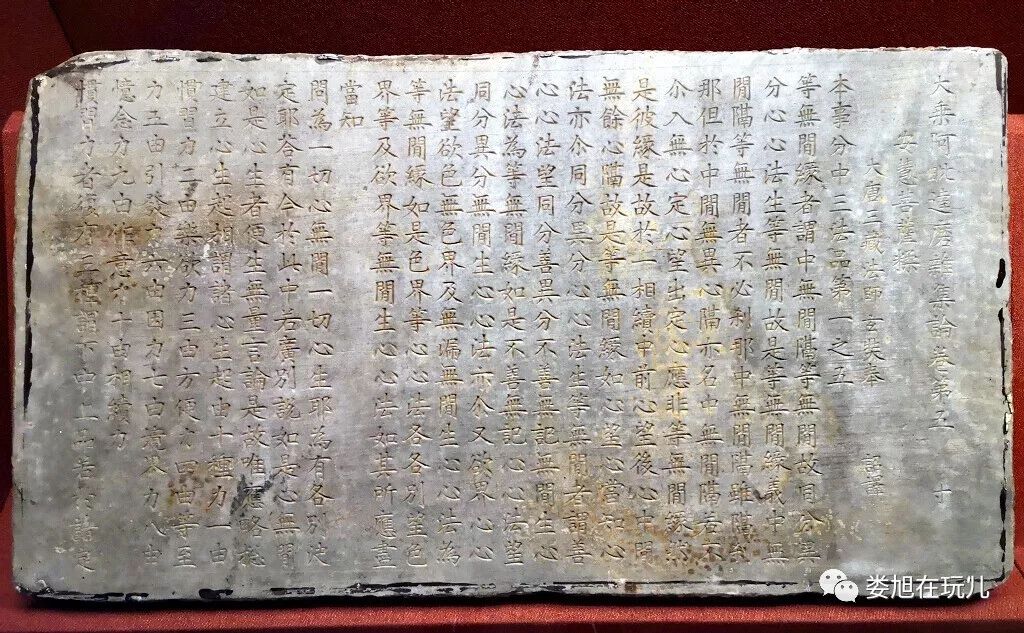 大乘阿毗達磨雜集論卷第五 寸
安慧菩薩糅
大唐三藏法師玄奘奉 詔譯
本事分中三法品第一之五
等無間緣者謂中無間隔等無間故同分異
分心心法生等無間故是等無間緣義中無
間隔等無間者不必剎那中無間隔雖隔剎
那但於中間無異心隔亦名中無間隔若不
尒入無心定心望出定心應非等無間緣然
是彼緣是故於一相續中前心望後心中間
無餘心隔故是等無間緣如心望心當知心
法亦尒同分異分心心法生等無間者謂善
心心法望同分善異分不善無記無間生心
心法為等無間緣如是不善無記心心法望
同分異分無間生心心法亦尒又欲界心心
法望欲色無色界及無漏無間生心心法為
等無間緣如是色界等心心法各各別望色
界等及欲界等無間生心心法如其所應盡
當知
問為一切心無間一切心生耶為有各別決
定耶荅有今於此中若廣別說如是心無間
如是心生者便生無量言論是故唯應略揔
建立心生起相謂諸心生起由十種力一由
慣習力二由樂欲力三由方便力四由等至
力五由引發力六由因力七由境界力八由
憶念力九由作意力十由相續力
慣習力者復有三種謂下中上品若於諸定
娄旭在玩儿